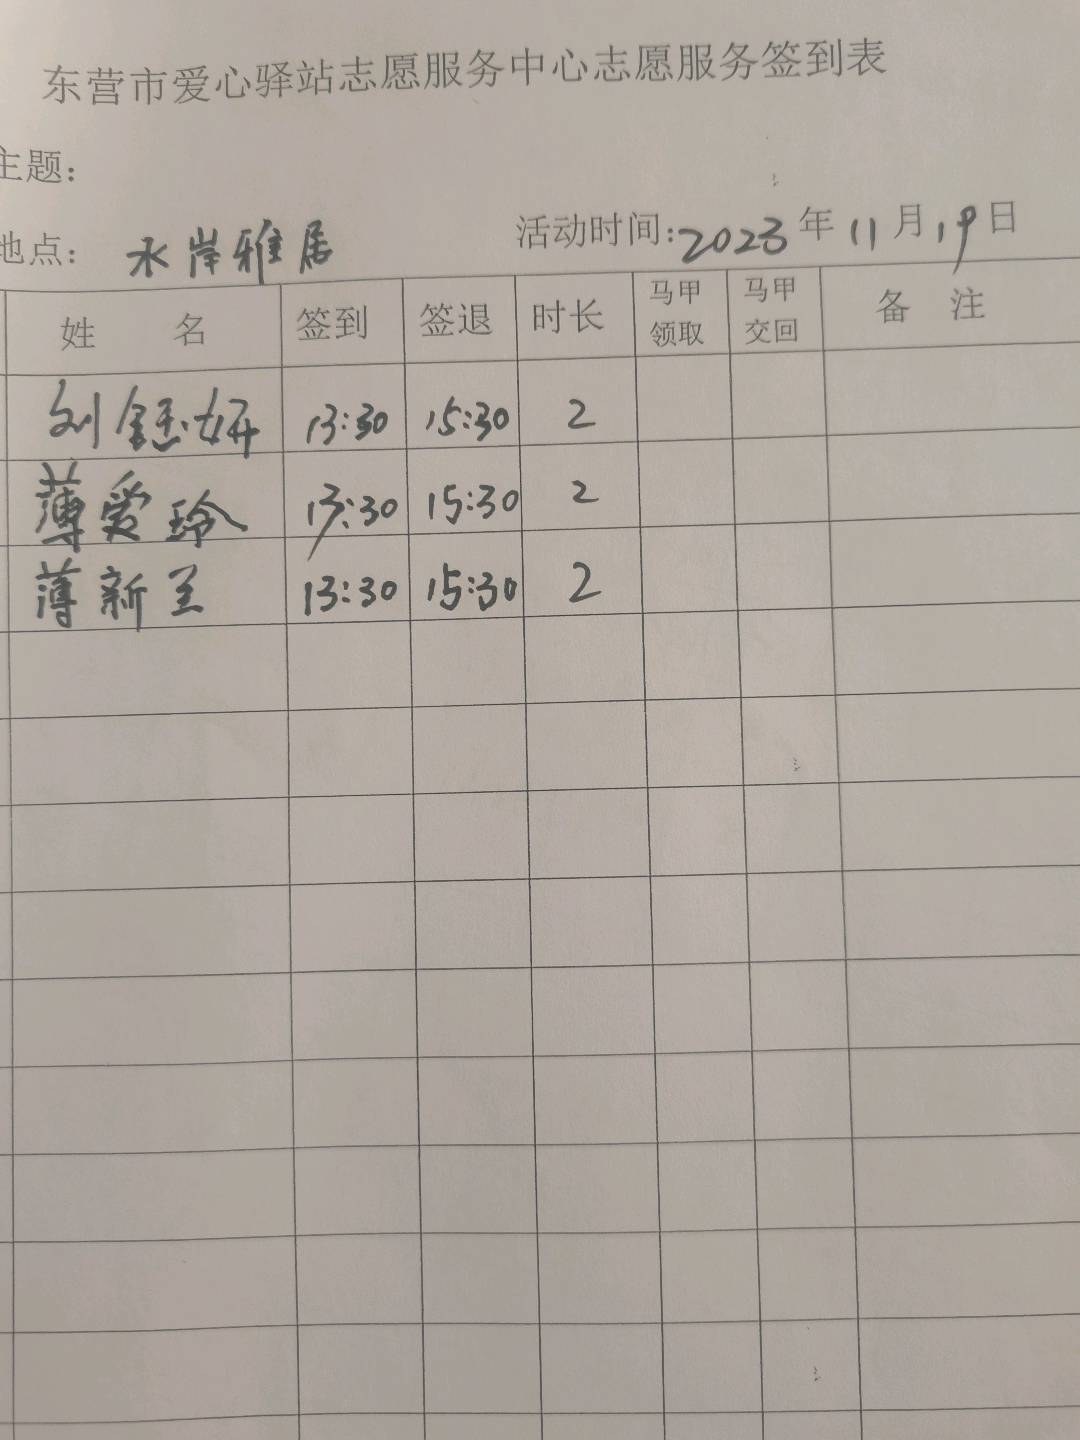 东营市爱心驿站志愿服务中心志愿服务签到表
主题：
地点： 水岸雅居 活动时间：2023年11月19日
姓名 签到 签退 时长 马甲领取 马甲交回 备注
刘鈺妍 13:30 15:30 2
薄爱玲 13:30 15:30 2
薄新兰 13:30 15:30 2